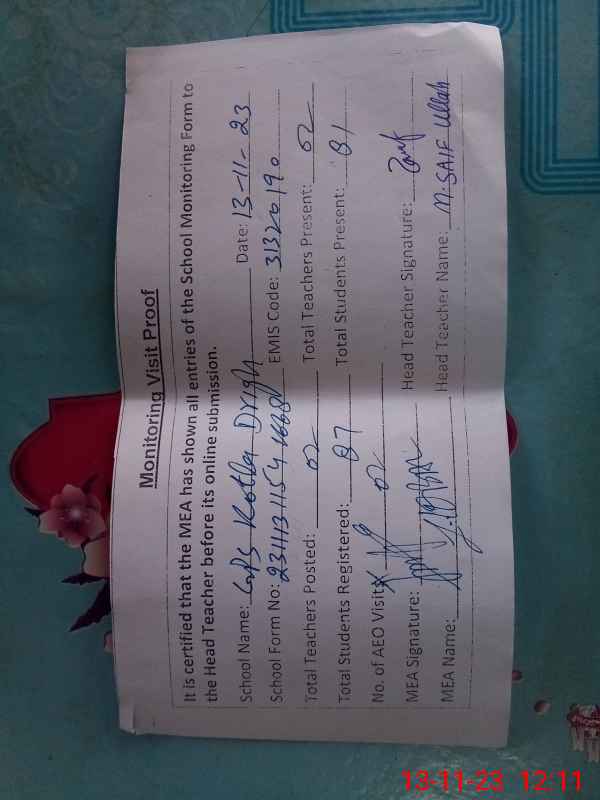 Monitoring Visit Proof
It is certified that the MEA has shown all entries of the School Monitoring Form to
the Head Teacher before its online submission.
School Name: GPS Kotla Drigh Date: 13-11-23
School Form No: EMIS Code: 31320190
Total Teachers Posted: 02 Total Teachers Present: 02
Total Students Registered: 87 Total Students Present: 81
No. of AEO Visits: 02
MEA Signature: Head Teacher Signature:
MEA Name: Head Teacher Name: M. SAIF Ullah
13-11-23 12:11